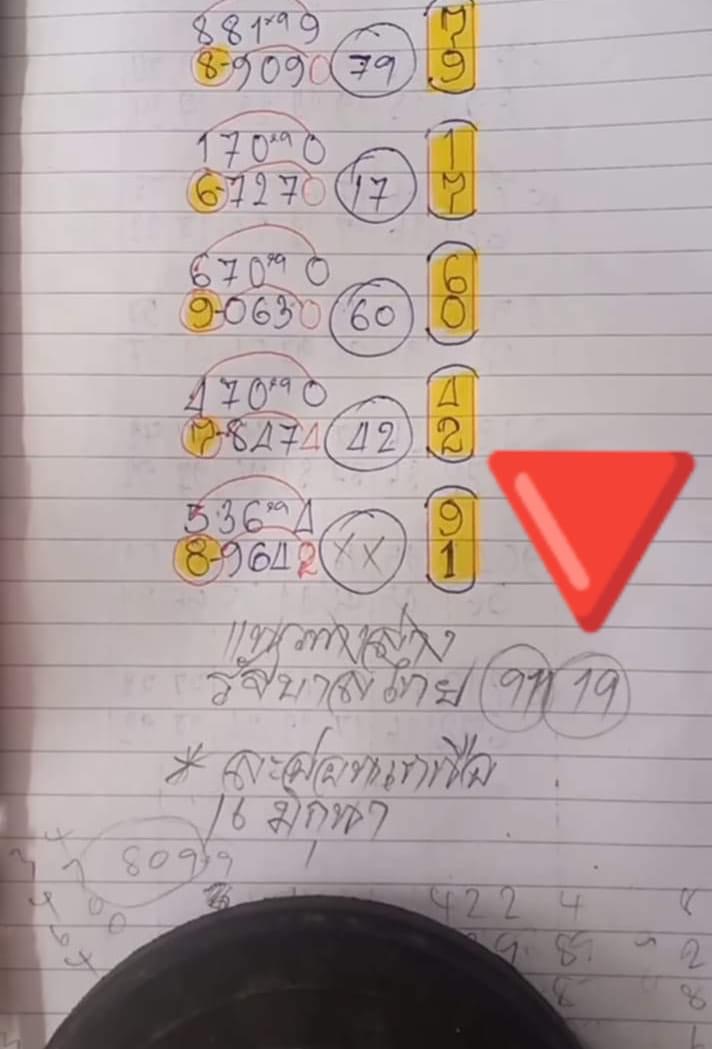 881×9 9 7
8-9090 79 9
170×9 0 1
6-7270 17 7
670×9 0 6
9-0630 60 0
470×9 0 4
7-8474 42 2
536×9 4 9
8-9642 XX 1
แนวทางล่าง
รัฐบาลไทย 91 19
16 มิถุนา
8099
422 4 8